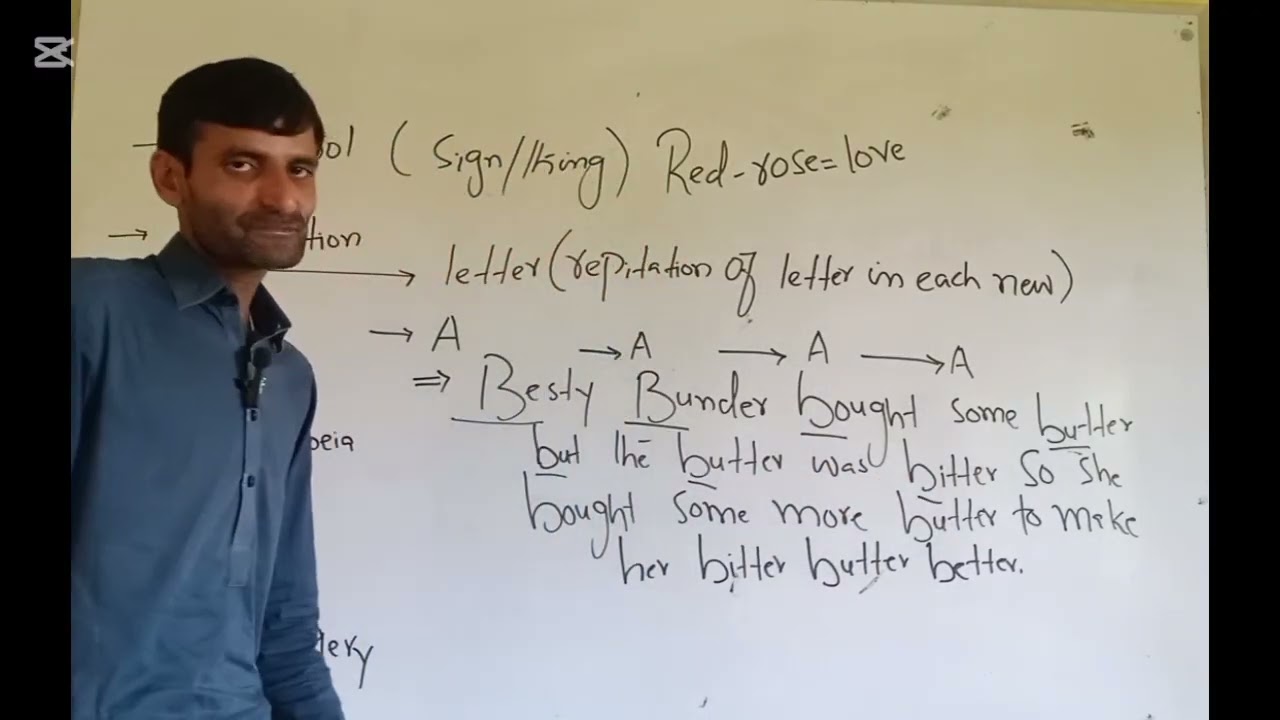 ol (Sign//King) Red-rose=love
→ tion
→ letter (repitation of letter in each new)
→ A → A → A → A
⇒ Besty Bunder bought some butter
but the butter was bitter so she
peia
bought some more butter to make
her bitter butter better.
lery